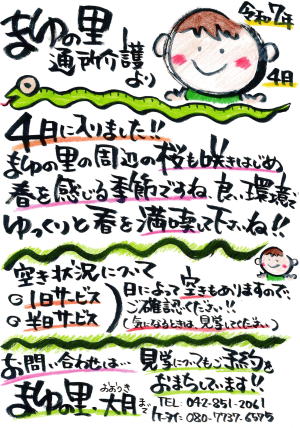 まゆの里
通所介護
より
令和7年
4月
4月に入りました!!
まゆの里の周辺の桜も咲きはじめ、
春を感じる季節ですね、良い環境で
ゆっくりと春を満喫して下さいね!!
空き状況について
◎1日サービス
◎半日サービス
日によって空きもありますので
ご確認ください!!
(気になるときは、見学してください)
お問い合わせは…
見学についてもご予約を
おまちしています!!
まゆの里・大月まで
おおつき
TEL: 042-851-2061
ケータイ: 080-7737-6575